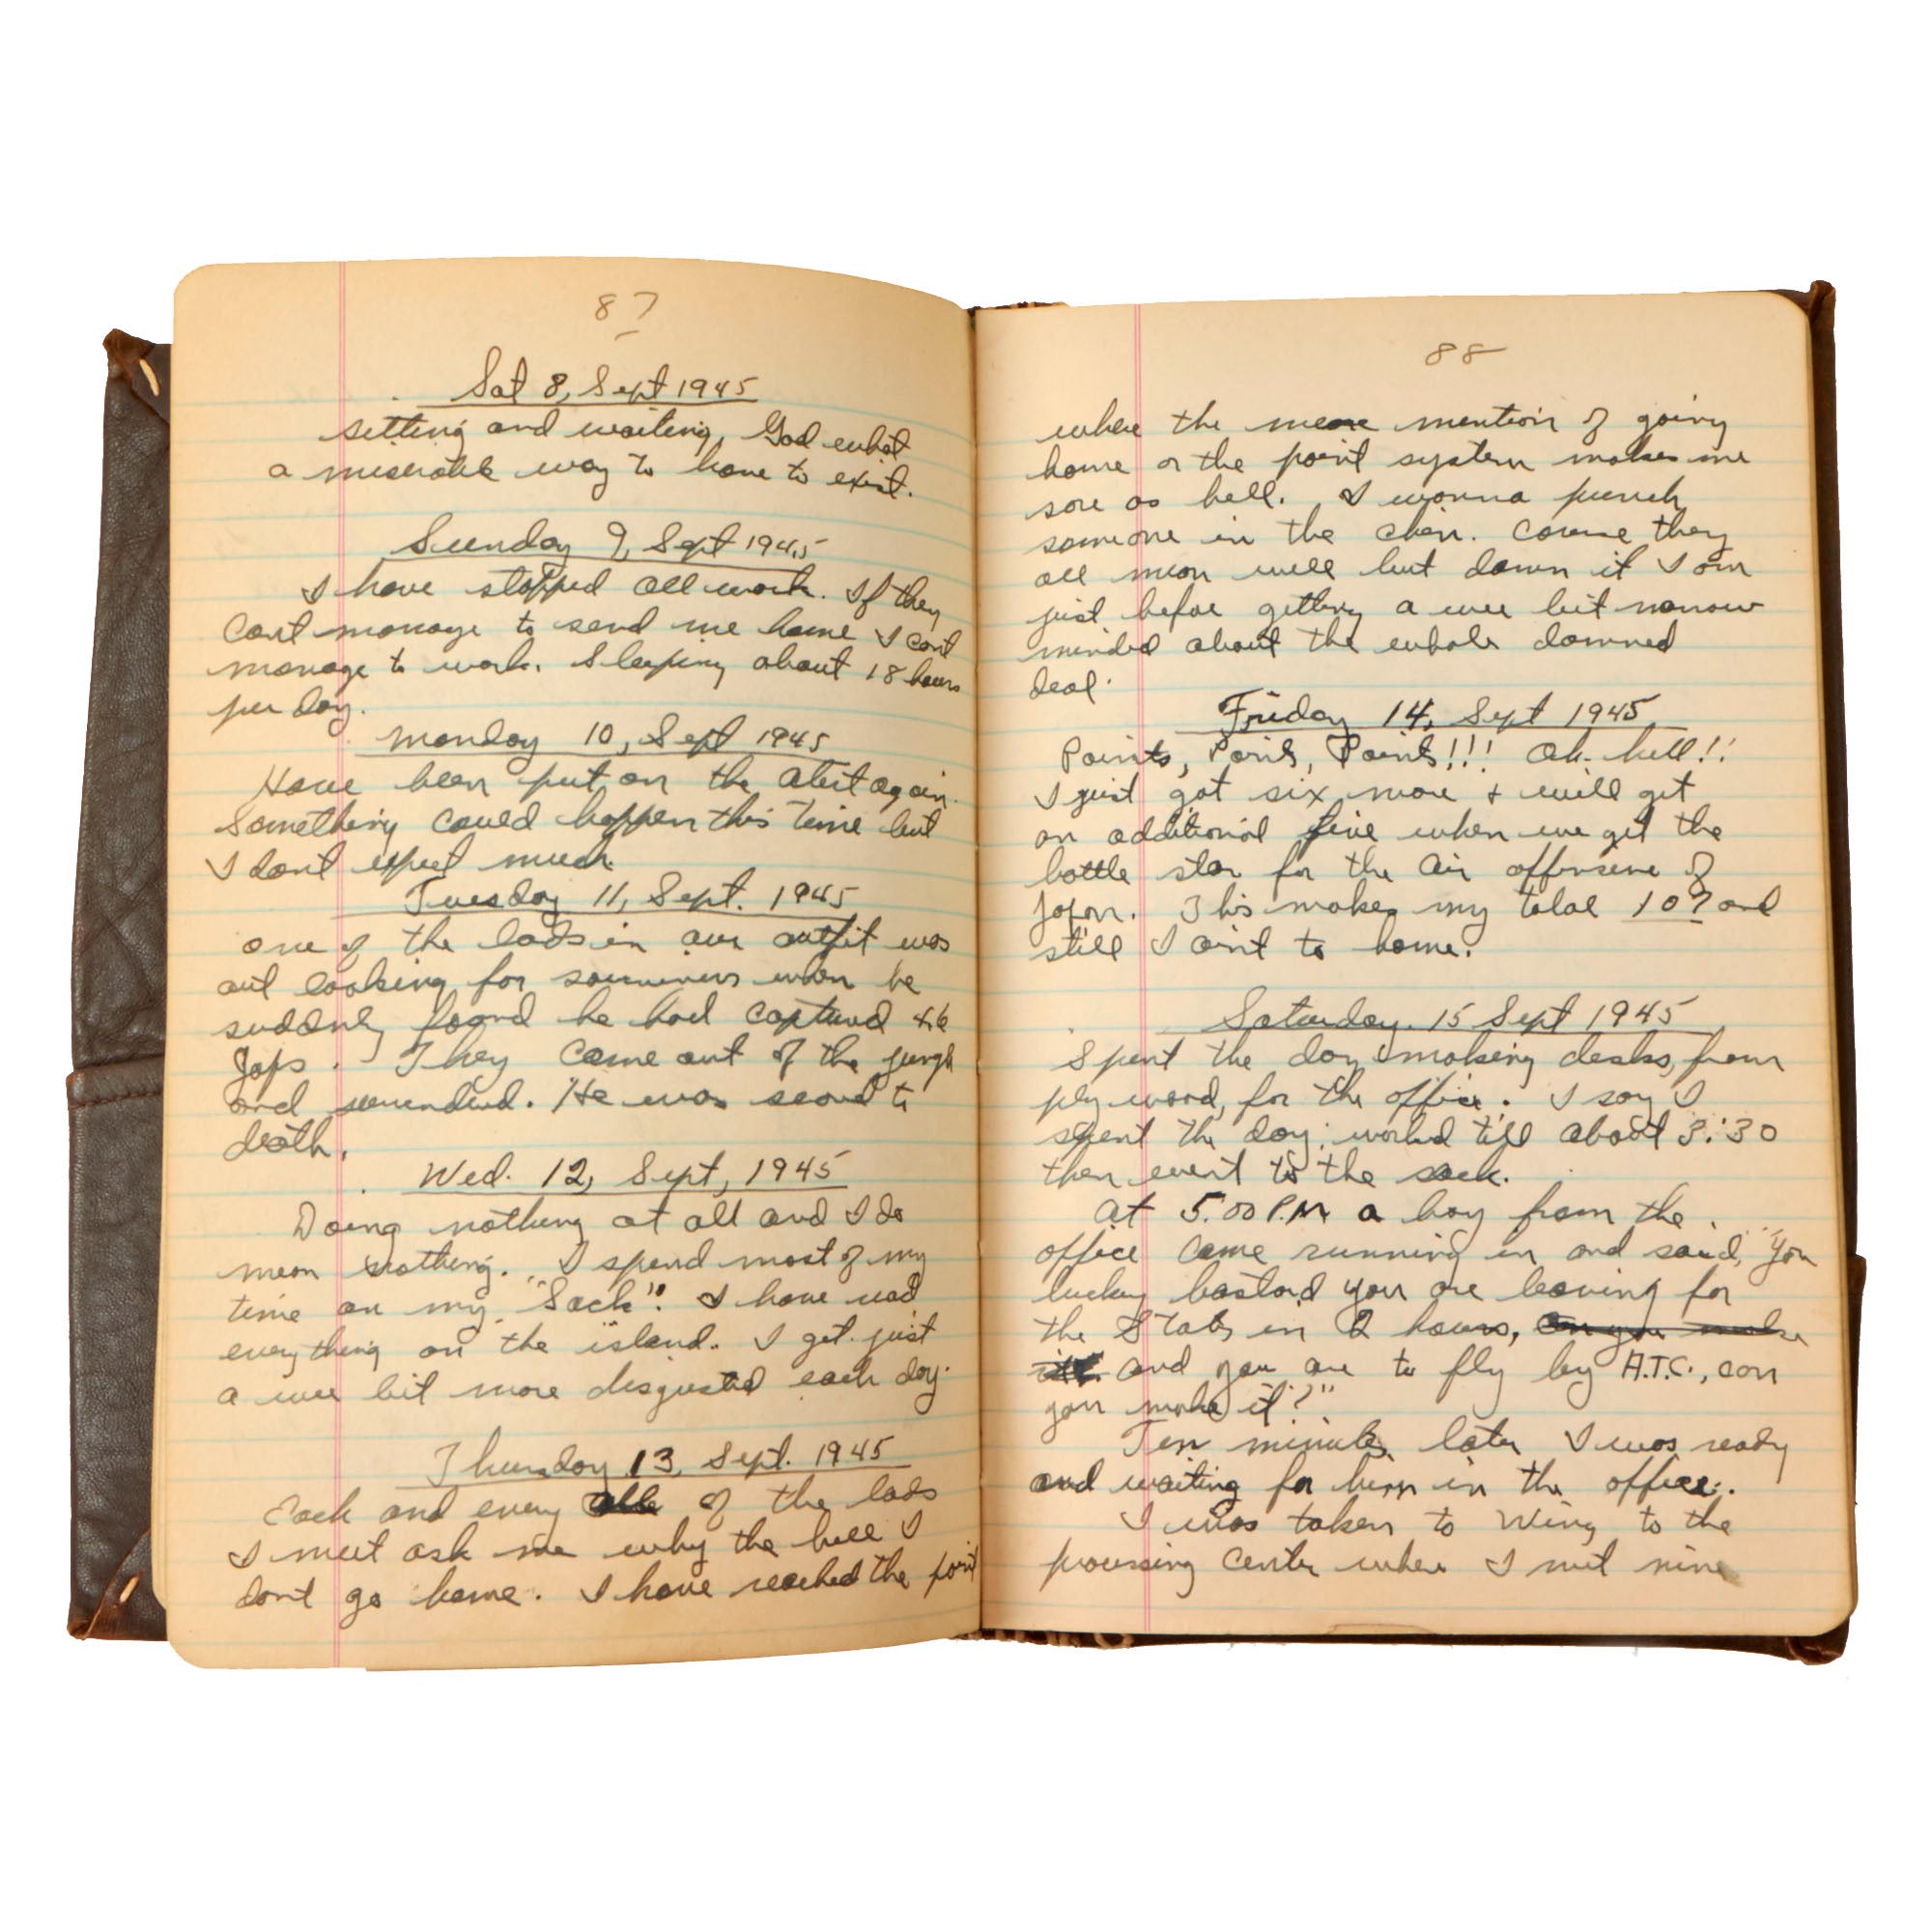 87
Sat 8, Sept 1945
setting and waiting, God what
a miserable way to have to exist.
Sunday 9, Sept 1945
I have stopped all work. If they
Cant manage to send me home I cant
manage to work. Sleeping about 18 hours
per day.
Monday 10, Sept 1945
Have been put on the alert again.
Something could happen this time but
I dont expect much.
Tuesday 11, Sept. 1945
one of the lads in our outfit was
out looking for souviners when he
suddenly found he had captured 46
Japs. They came out of the jungle
and surrendered. He was scared to
death.
Wed. 12, Sept, 1945
Doing nothing at all and I do
mean nothing. I spend most of my
time on my "Sack". I have read
everything on the island. I get just
a wee bit more disgusted each day.
Thursday 13, Sept. 1945
Each and every of the lads
I meet ask me why the hell I
dont go home. I have reached the point
88
where the mere mention of going
home or the point system makes me
sore as hell. I wanna punch
someone in the chin. Course they
all mean well but damn it I am
just before getting a wee bit narrow
minded about the whole damned
deal.
Friday 14, Sept 1945
Points, Points, Points!!! Oh hell!!
I just got six more + will get
an additional five when we get the
battle star for the air offensive of
Japan. This makes my total 107 and
still I ain't to home.
Saturday. 15 Sept 1945
Spent the day making desks, from
ply wood, for the office. I say I
spent the day; worked till about 3:30
then went to the sack.
At 5:00 P.M. a boy from the
office came running in and said, "You
lucky bastard you are leaving for
the States in 2 hours, can you make
it and you are to fly by A.T.C., can
you make it?"
Ten minutes later I was ready
and waiting for him in the office.
I was taken to Wing to the
processing center where I met nine